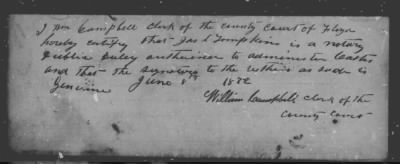 I Wm Campbell clerk of the county court of Floyd
hereby certify that Jas L Tompkins is a notary
Public duly authorised to administer Oaths
and that the signature to the within as such is
Genuine June 8th 1882
William Campbell clerk of the
county court